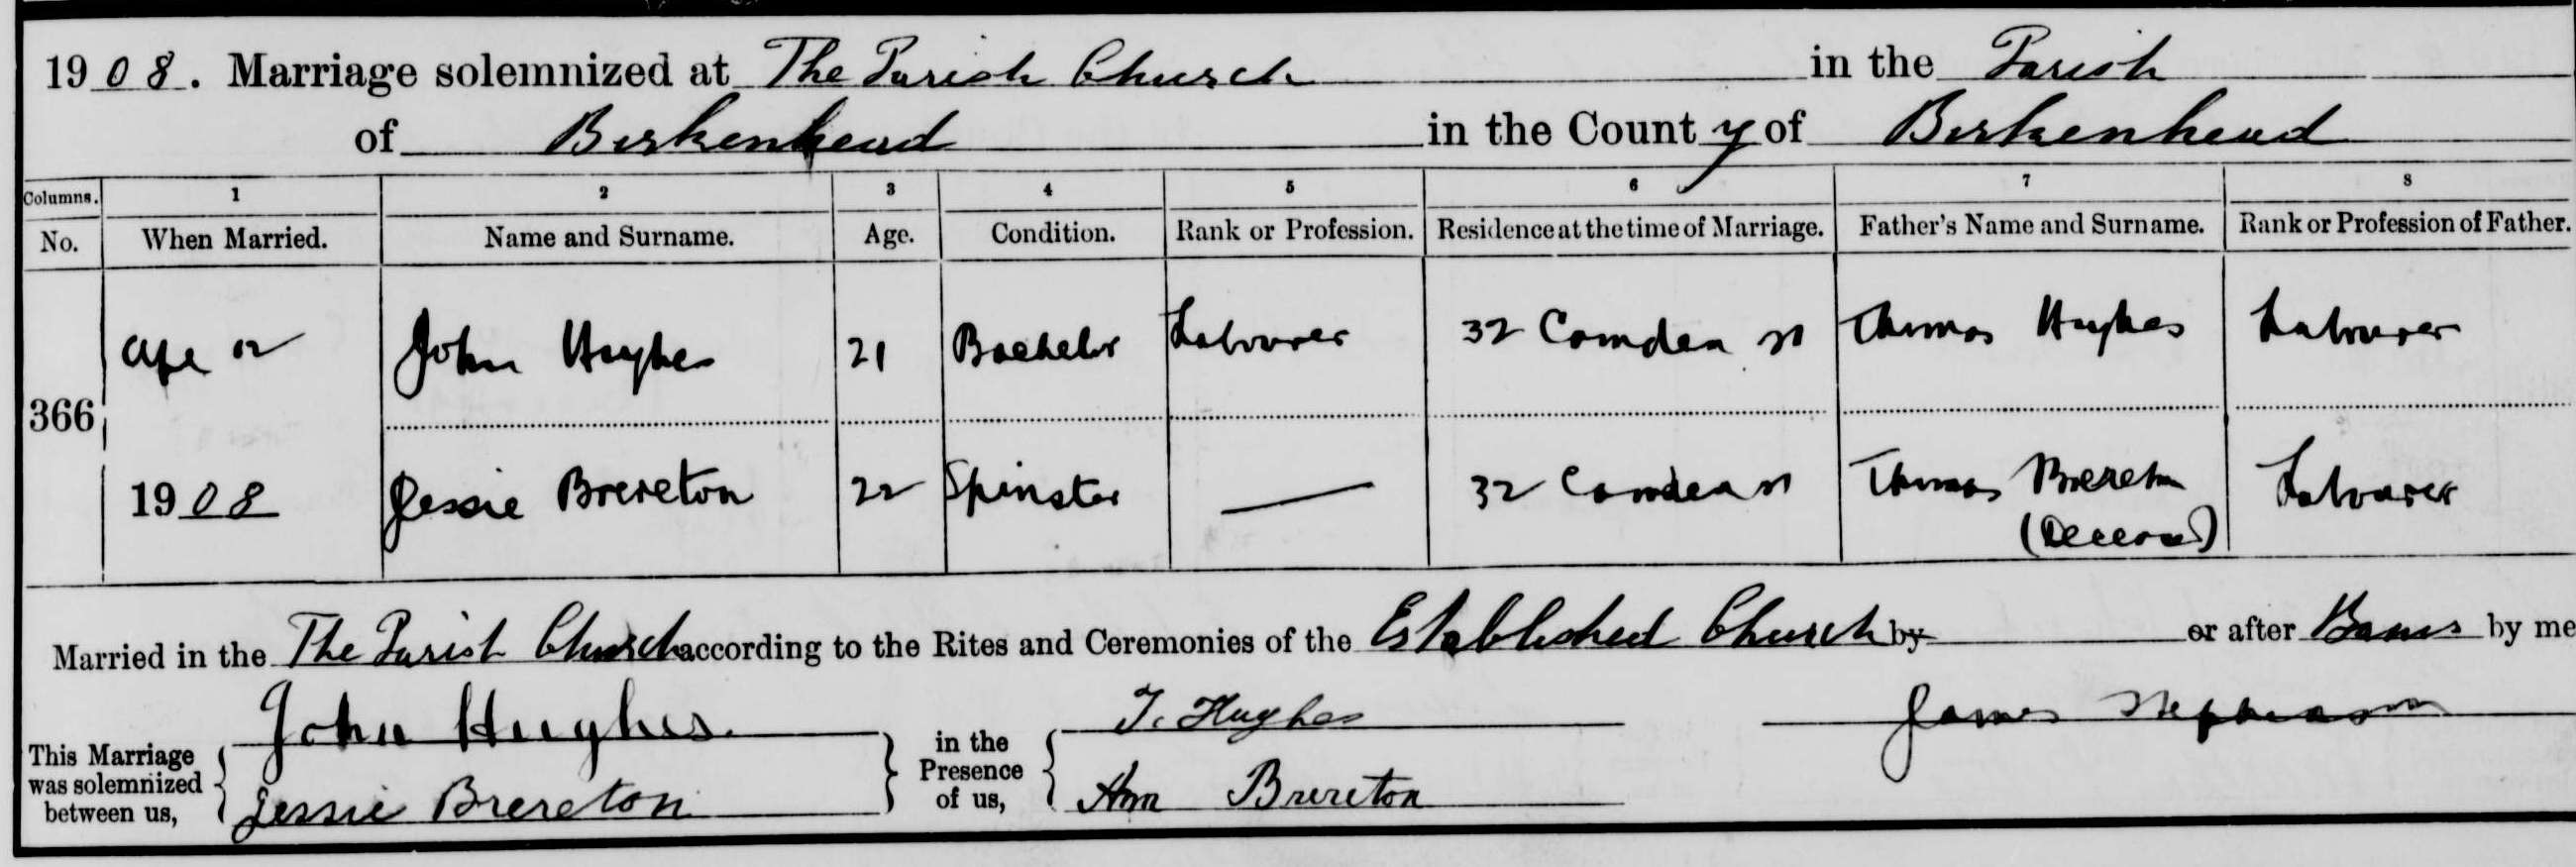 1908. Marriage solemnized at The Parish Church in the Parish
of Birkenhead in the County of Birkenhead
Columns. 1 2 3 4 5 6 7 8
No. When Married. Name and Surname. Age. Condition. Rank or Profession. Residence at the time of Marriage. Father's Name and Surname. Rank or Profession of Father.
John Hughes 21 Bachelor Labourer 32 Camden St Thomas Hughes Labourer
366
1908 Jessie Brereton 22 Spinster — 32 Camden St Thomas Brereton Labourer
(Deceased)
Married in the The Parish Church according to the Rites and Ceremonies of the Established Church by or after Banns by me
John Hughes. T. Hughes James Stephenson
This Marriage was solemnized between us, in the Presence of us,
Jessie Brereton Ann Brereton